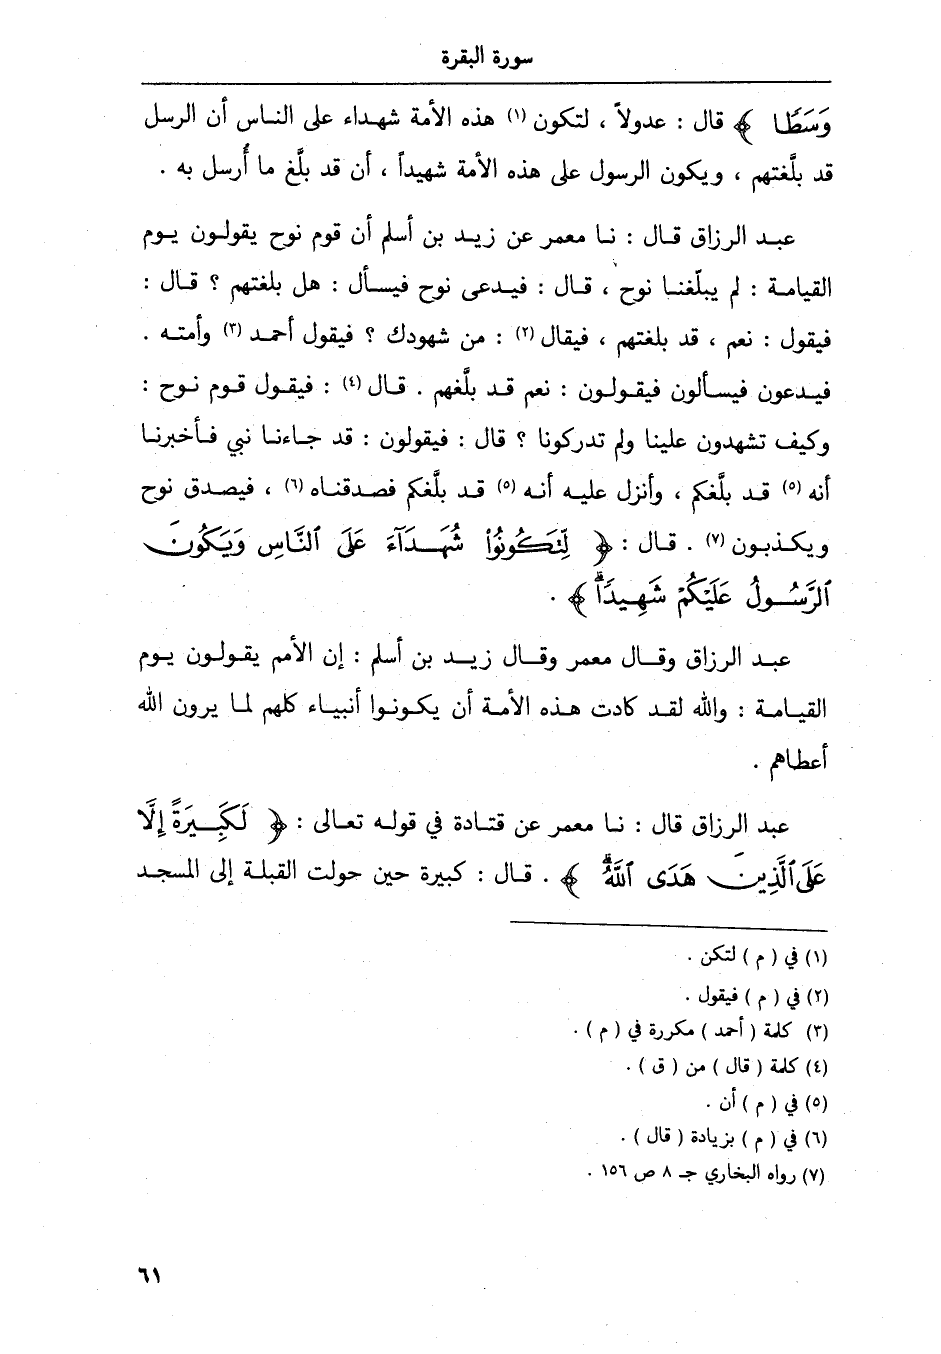 سورة البقرة
وَسَطًا ﴾ قال : عدولاً ، لتكون (١) هذه الأمة شهداء على الناس أن الرسل
قد بلَّغتهم ، ويكون الرسول على هذه الأمة شهيداً ، أن قد بلَّغ ما أُرسل به .
عبد الرزاق قال : نا معمر عن زيد بن أسلم أن قوم نوح يقولون يوم
القيامة : لم يبلّغنا نوح ، قال : فيدعى نوح فيسأل : هل بلغتهم ؟ قال :
فيقول : نعم ، قد بلغتهم ، فيقال (٢) : من شهودك ؟ فيقول أحمد (٣) وأمته .
فيدعون فيسألون فيقولون : نعم قد بلَّغهم . قال (٤) : فيقول قوم نوح :
وكيف تشهدون علينا ولم تدركونا ؟ قال : فيقولون : قد جاءنا نبي فأخبرنا
أنه (٥) قد بلَّغكم ، وأنزل عليه أنه (٥) قد بلَّغكم فصدقناه (٦) ، فيصدق نوح
ويكذبون (٧) . قال : ﴿ لِّتَكُونُوا۟ شُهَدَآءَ عَلَى ٱلنَّاسِ وَيَكُونَ
ٱلرَّسُولُ عَلَيْكُمْ شَهِيدًا ۗ ﴾ .
عبد الرزاق وقال معمر وقال زيد بن أسلم : إن الأمم يقولون يوم
القيامة : والله لقد كادت هذه الأمة أن يكونوا أنبياء كلهم لما يرون الله
أعطاهم .
عبد الرزاق قال : نا معمر عن قتادة في قوله تعالى : ﴿ لَكَبِيرَةً إِلَّا
عَلَى ٱلَّذِينَ هَدَى ٱللَّهُ ۗ ﴾ . قال : كبيرة حين حولت القبلة إلى المسجد
(١) في ( م ) لتكن .
(٢) في ( م ) فيقول .
(٣) كلمة ( أحمد ) مكررة في ( م ) .
(٤) كلمة ( قال ) من ( ق ) .
(٥) في ( م ) أن .
(٦) في ( م ) بزيادة ( قال ) .
(٧) رواه البخاري جـ ٨ ص ١٥٦ .
٦١